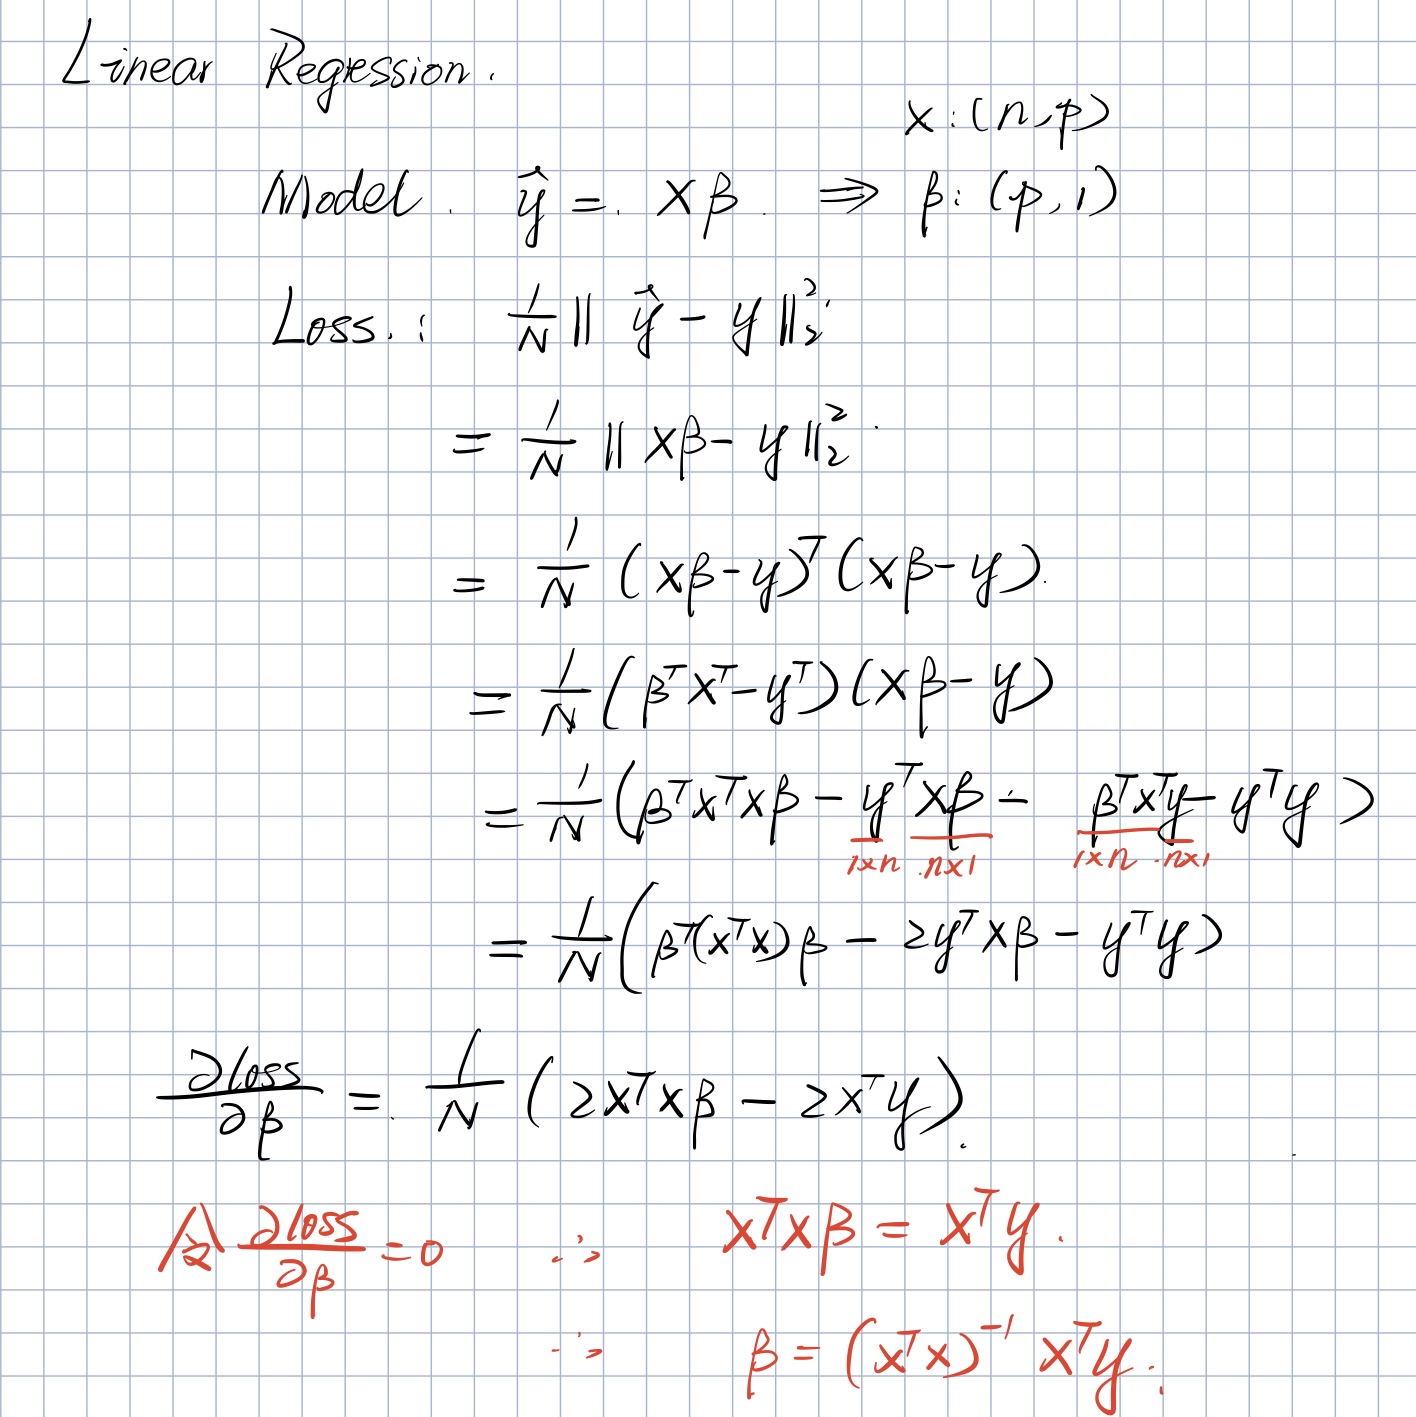 Linear Regression.
x: (n, p)
Model. ŷ = xβ. ⇒ β: (p, 1)
Loss.: 1/N ‖ŷ - y‖₂²
= 1/N ‖xβ - y‖₂²
= 1/N (xβ - y)ᵀ (xβ - y).
= 1/N (βᵀxᵀ - yᵀ) (xβ - y)
= 1/N (βᵀxᵀxβ - yᵀxβ - βᵀxᵀy - yᵀy)
1×n n×1 1×n n×1
= 1/N (βᵀ(xᵀx)β - 2yᵀxβ - yᵀy)
∂loss/∂β = 1/N (2xᵀxβ - 2xᵀy).
令 ∂loss/∂β = 0 ∴ xᵀxβ = xᵀy.
∴ β = (xᵀx)⁻¹ xᵀy.